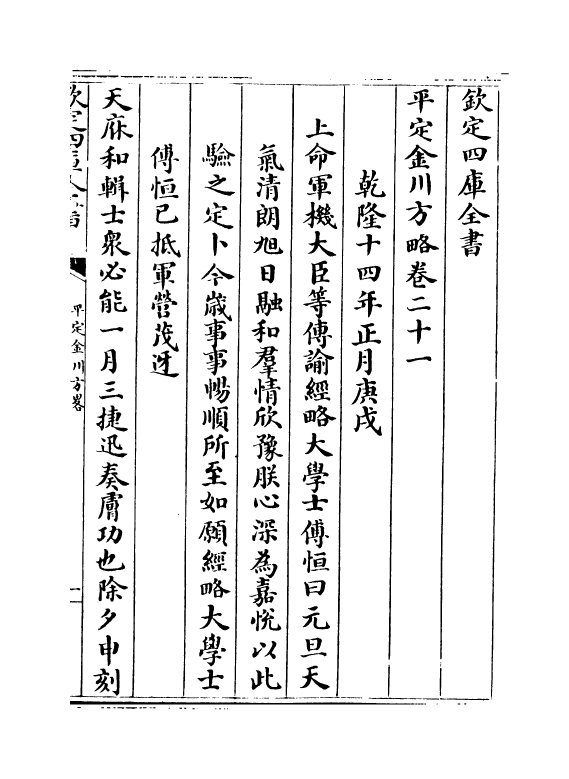 欽定四庫全書
平定金川方略卷二十一
乾隆十四年正月庚戌
上命軍機大臣等傳諭經略大學士傅恒曰元旦天
氣清朗旭日融和羣情欣豫朕心深為嘉悅以此
驗之定卜今嵗事事暢順所至如願經略大學士
傅恒已抵軍營茂迓
天庥和輯士衆必能一月三捷迅奏膚功也除夕申刻
平定金川方畧
一